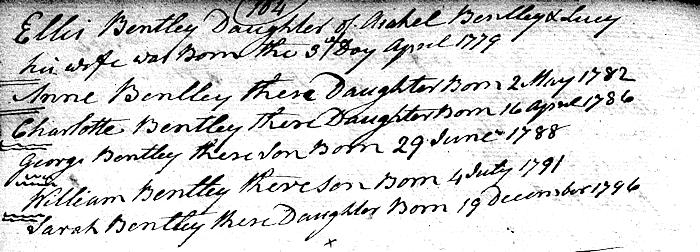 104
Ellis Bentley Daughter of Asahel Bentley & Lucy
his wife was Born the 3d Day April 1779
Anne Bentley there Daughter Born 2 May 1782
Charlotte Bentley there Daughter Born 16 April 1786
George Bentley there Son Born 29 June 1788
William Bentley there Son Born 4 July 1791
Sarah Bentley there Daughter Born 19 December 1796